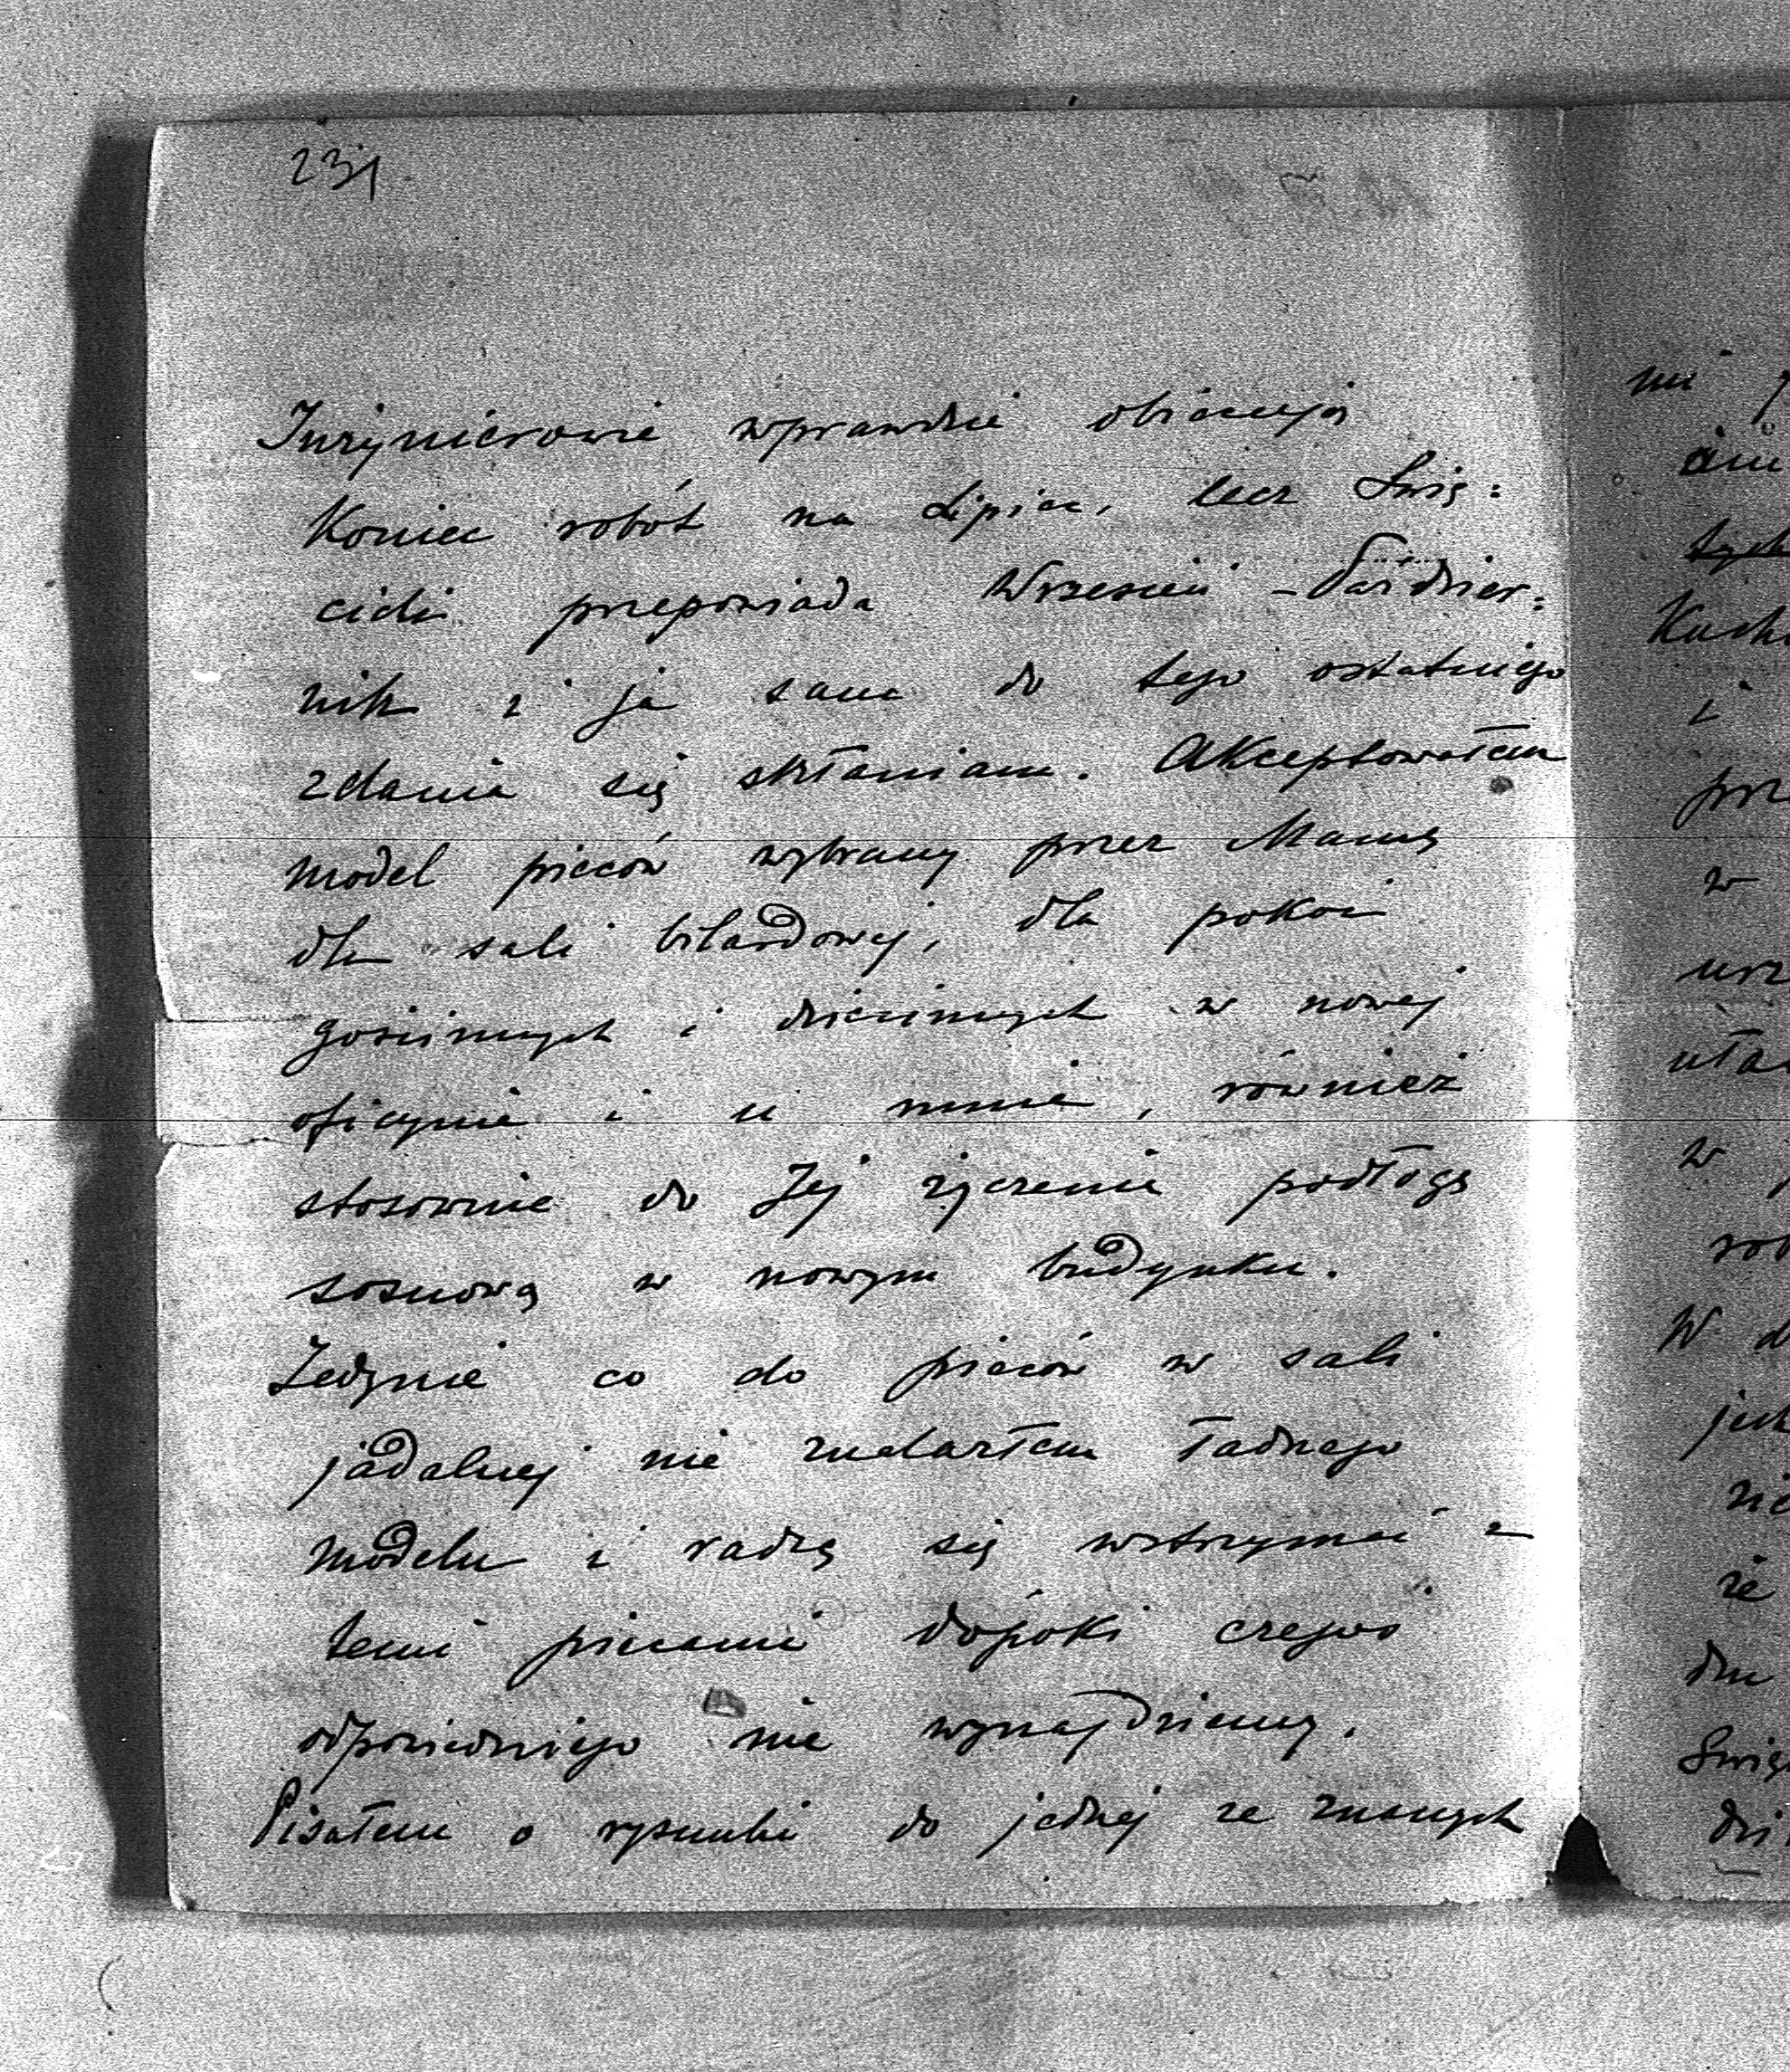 231
Inżynierowie wprawdzie obiecują
Koniec robót na Lipiec, lecz Świę:
cicki przepowiada Wrzesień - Paździer:
nik i ja sam do tego ostatniego
zdania się skłaniam. Akceptowałem
model pieców wybrany przez Mamę
dla sali bilardowej, dla pokoi
gościnnych i dziecinnych w nowej
oficynie i u mnie, również
stosownie do Jej życzenia podłogę
sosnową w nowym budynku.
Jedynie co do pieców w sali
jadalnej nie znalazłem ładnego
modelu i radzę się wstrzymać z
temi piecami dopóki czegoś
odpowiedniego nie wynajdziemy.
Pisałem o rysunki do jednej ze znanych